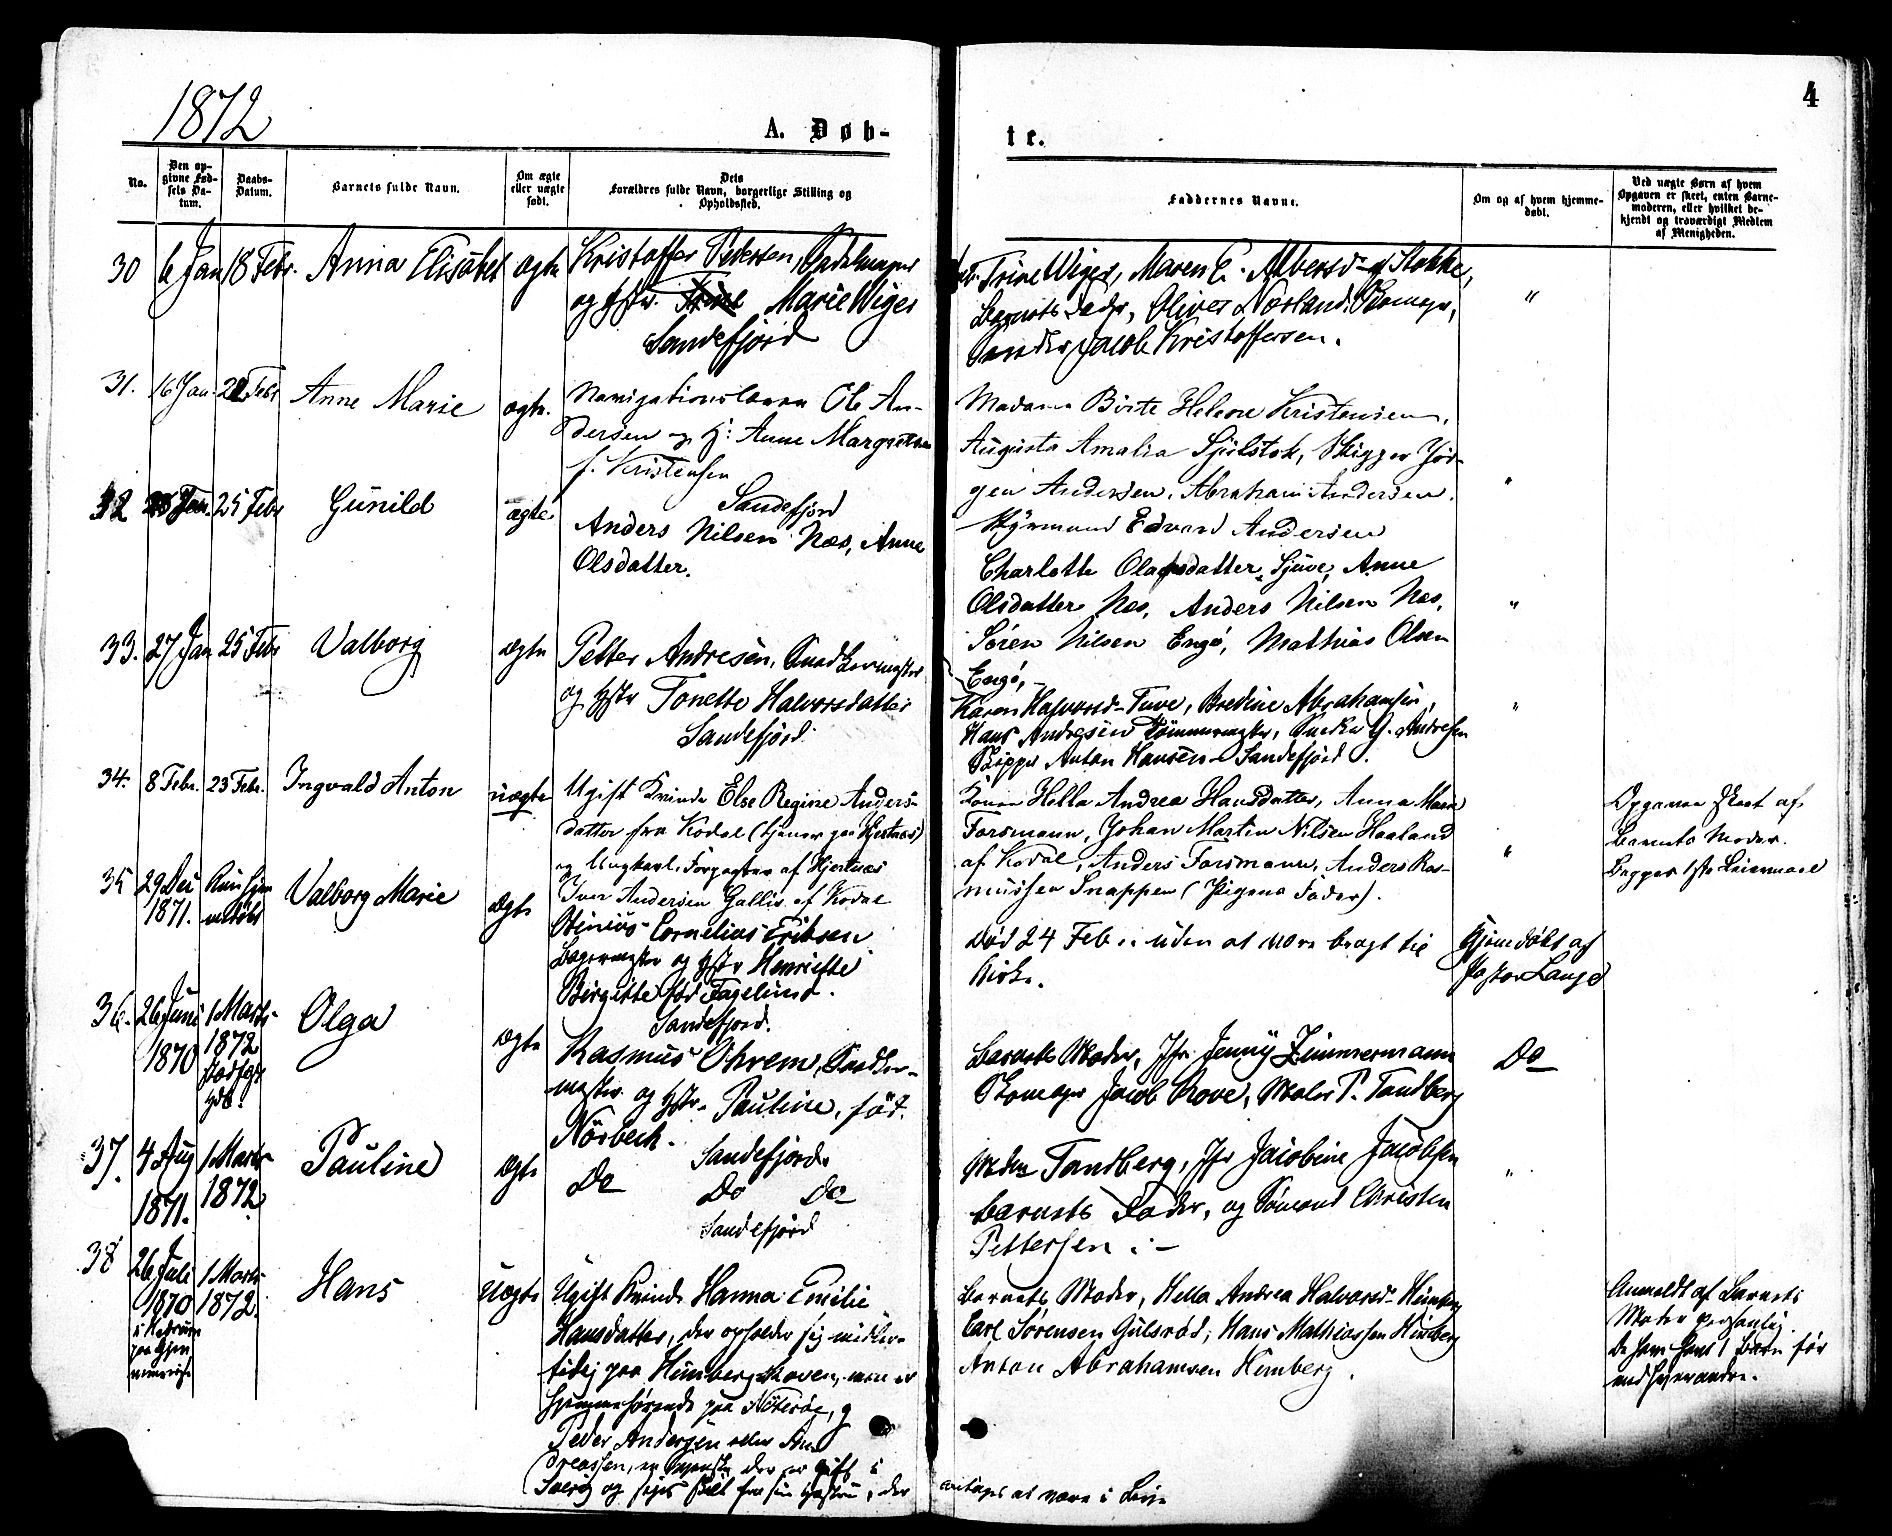 1872
A. Døb-
te.
4
No.
Den op-
givne Fød-
sels Da-
tum.
Daabs-
Datum.
Barnets fulde Navn.
Om ægte
eller uægte
født.
Dets
Forældres fulde Navn, borgerlige Stilling og
Opholdssted.
Faddernes Navne.
Om og af hvem hjemme-
døbt.
Ved uægte Børn af hvem
Opgaven er skeet, enten Barne-
moderen, eller hvilket be-
kjendt og troværdigt Medlem
af Menigheden.
30 6 Jan 18 Febr. Anna Elisabet ægte
Kristoffer Pedersen, Sadelmager
og Hstr. Trine Marie Wiger
Sandefjord
Trine Wiger, Maren E. Albersd. af Stokke,
Barnets Fader, Oliver Norland Skomagr,
Jacob Kristoffersen.
"
31. 16 Jan. 22 Febr Anne Marie ægte.
Navigationslærer Ole An-
dersen og H: Anne Margrethe
f. Kristensen
Sandefjord
Madame Birte Helene Kristensen,
Augusta Amalia Sjulstok, Skipper Jør-
gen Andersen, Abraham Andersen.
Styrmand Edvard Andersen
"
32 Jan. 25 Febr Gunild ægte
Anders Nilsen Næs, Anne
Olsdatter.
Charlotte Olagsdatter Sjuve, Anne
Olsdatter Næs, Anders Nilsen Næs,
Søren Nilsen Engø, Mathias Olsen
Engø,
"
33. 27 Jan 25 Febr Valborg ægte
Petter Andresen, Snedkermester
og Hstr Tonette Halvorsdatter
Sandefjord
Karen Halvorsd. Tuve, Bredine Abrahamsen,
Hans Andresen Tømmermester, Snedker G. Andresen
Skipper Anton Hansen - Sandefjord.
"
34. 8 Febr. 23 Febr. Ingvald Anton uægte
Ugift Kvinde Else Regine Anders-
datter fra Kodal (tjener paa Hjertnæs)
og Ungkarl, Forpagter af Hjertnæs
Iver Andersen Gallis af Kodal
Konen Hella Andrea Hansdatter, Anna Marie
Forsmann, Johan Martin Nilsen Haaland
af Kodal, Anders Forsmann, Anders Ras-
mussen Snappen (Pigens Fader).
"
Opgaven skeet af
Barnets Moder.
Begges 1ste Leiermaal
35 29 Dec
1871.
Kun hjem
medøbt
Valborg Marie ægte
Stinius Cornelius Eriksen
Bagermester og Hstr Henriette
Birgitte fød Fagelund.
Sandefjord.
Død 24 Feb. uden at være bragt til
Kirke.
Hjemdøbt af
Pastor Lange
36. 26 Juni
1870
1 Marts
1872
Olga ægte
Rasmus Ohrem, Snedker-
mester og Hstr. Pauline, født
Nørbech.
Sandefjord
Barnets Moder, Jfr Jenny Zimmermann
Skomager Jacob Rove, Maler P. Tandberg
Do
37. 4 Aug
1871.
1 Marts
1872
Pauline ægte
Do Do Do
Sandefjord
Madm Tandberg, Jfr Jacobine Jacobsen
Barnets Fader, og Sømand Christen
Pettersen
"
38 26 Juli
1870
1 Marts
1872.
Hans uægte
Ugift Kvinde Hanna Emilie
Hansdatter, der opholder sig midler-
tidig paa Himbergskoven, men er
hjemmehørende paa Nøterøe, og
Peder Andersen eller An-
dreassen, en Svenske der er gift i
Sverig og siges skilt fra sin Hustru, der
antages at være i Live
Barnets Moder, Hella Andrea Halvorsd. Himberg
Carl Sørensen Gulsrød, Hans Mathiassen Himberg
Anton Abrahamsen Himberg.
Anmeldt af Barnets
Moder personlig.
De have havt 1 Barn før
med hverandre.